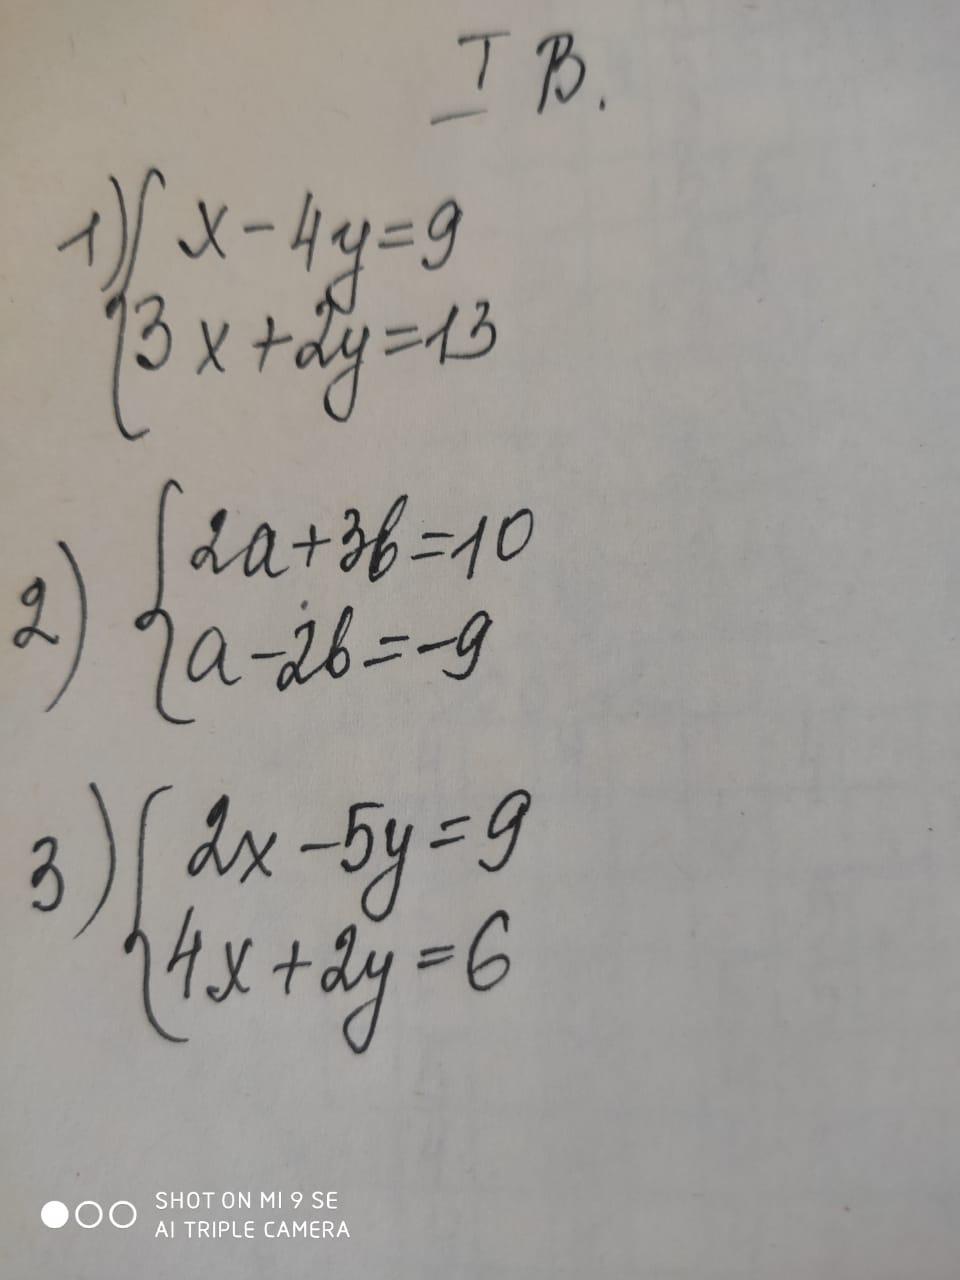 I В.
1) { x - 4y = 9
3x + 2y = 13
2) { 2a + 3b = 10
a - 2b = -9
3) { 2x - 5y = 9
4x + 2y = 6
SHOT ON MI 9 SE
AI TRIPLE CAMERA